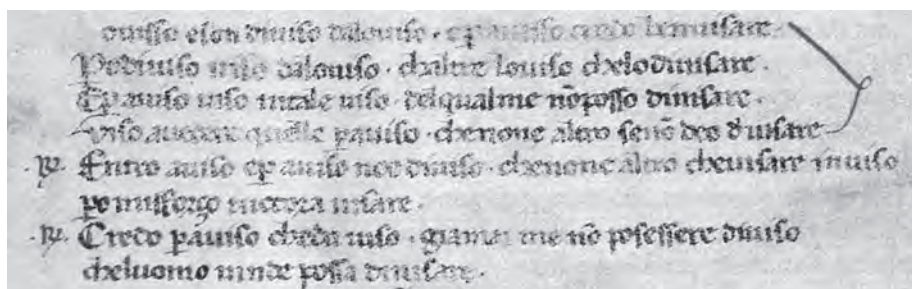 ouisso eson diuiso daloviso · ep auiso credo benuisare
Pediuiso uiso daloviso · chaltre louiso chelodiuisare ·
Ep auiso uiso intale uiso · delqualme nō posso diuisare ·
viso auedere quelle pauiso · chenone altro senō deo diuisare
·R· Entro auiso ep auiso noe diuiso · chenone altro cheuisare inuiso
po misforço tuctora uisare ·
·R· Credo pauiso cheda uiso · giamai me nō posessere diuiso
cheluomo uinde possa diuisare ·